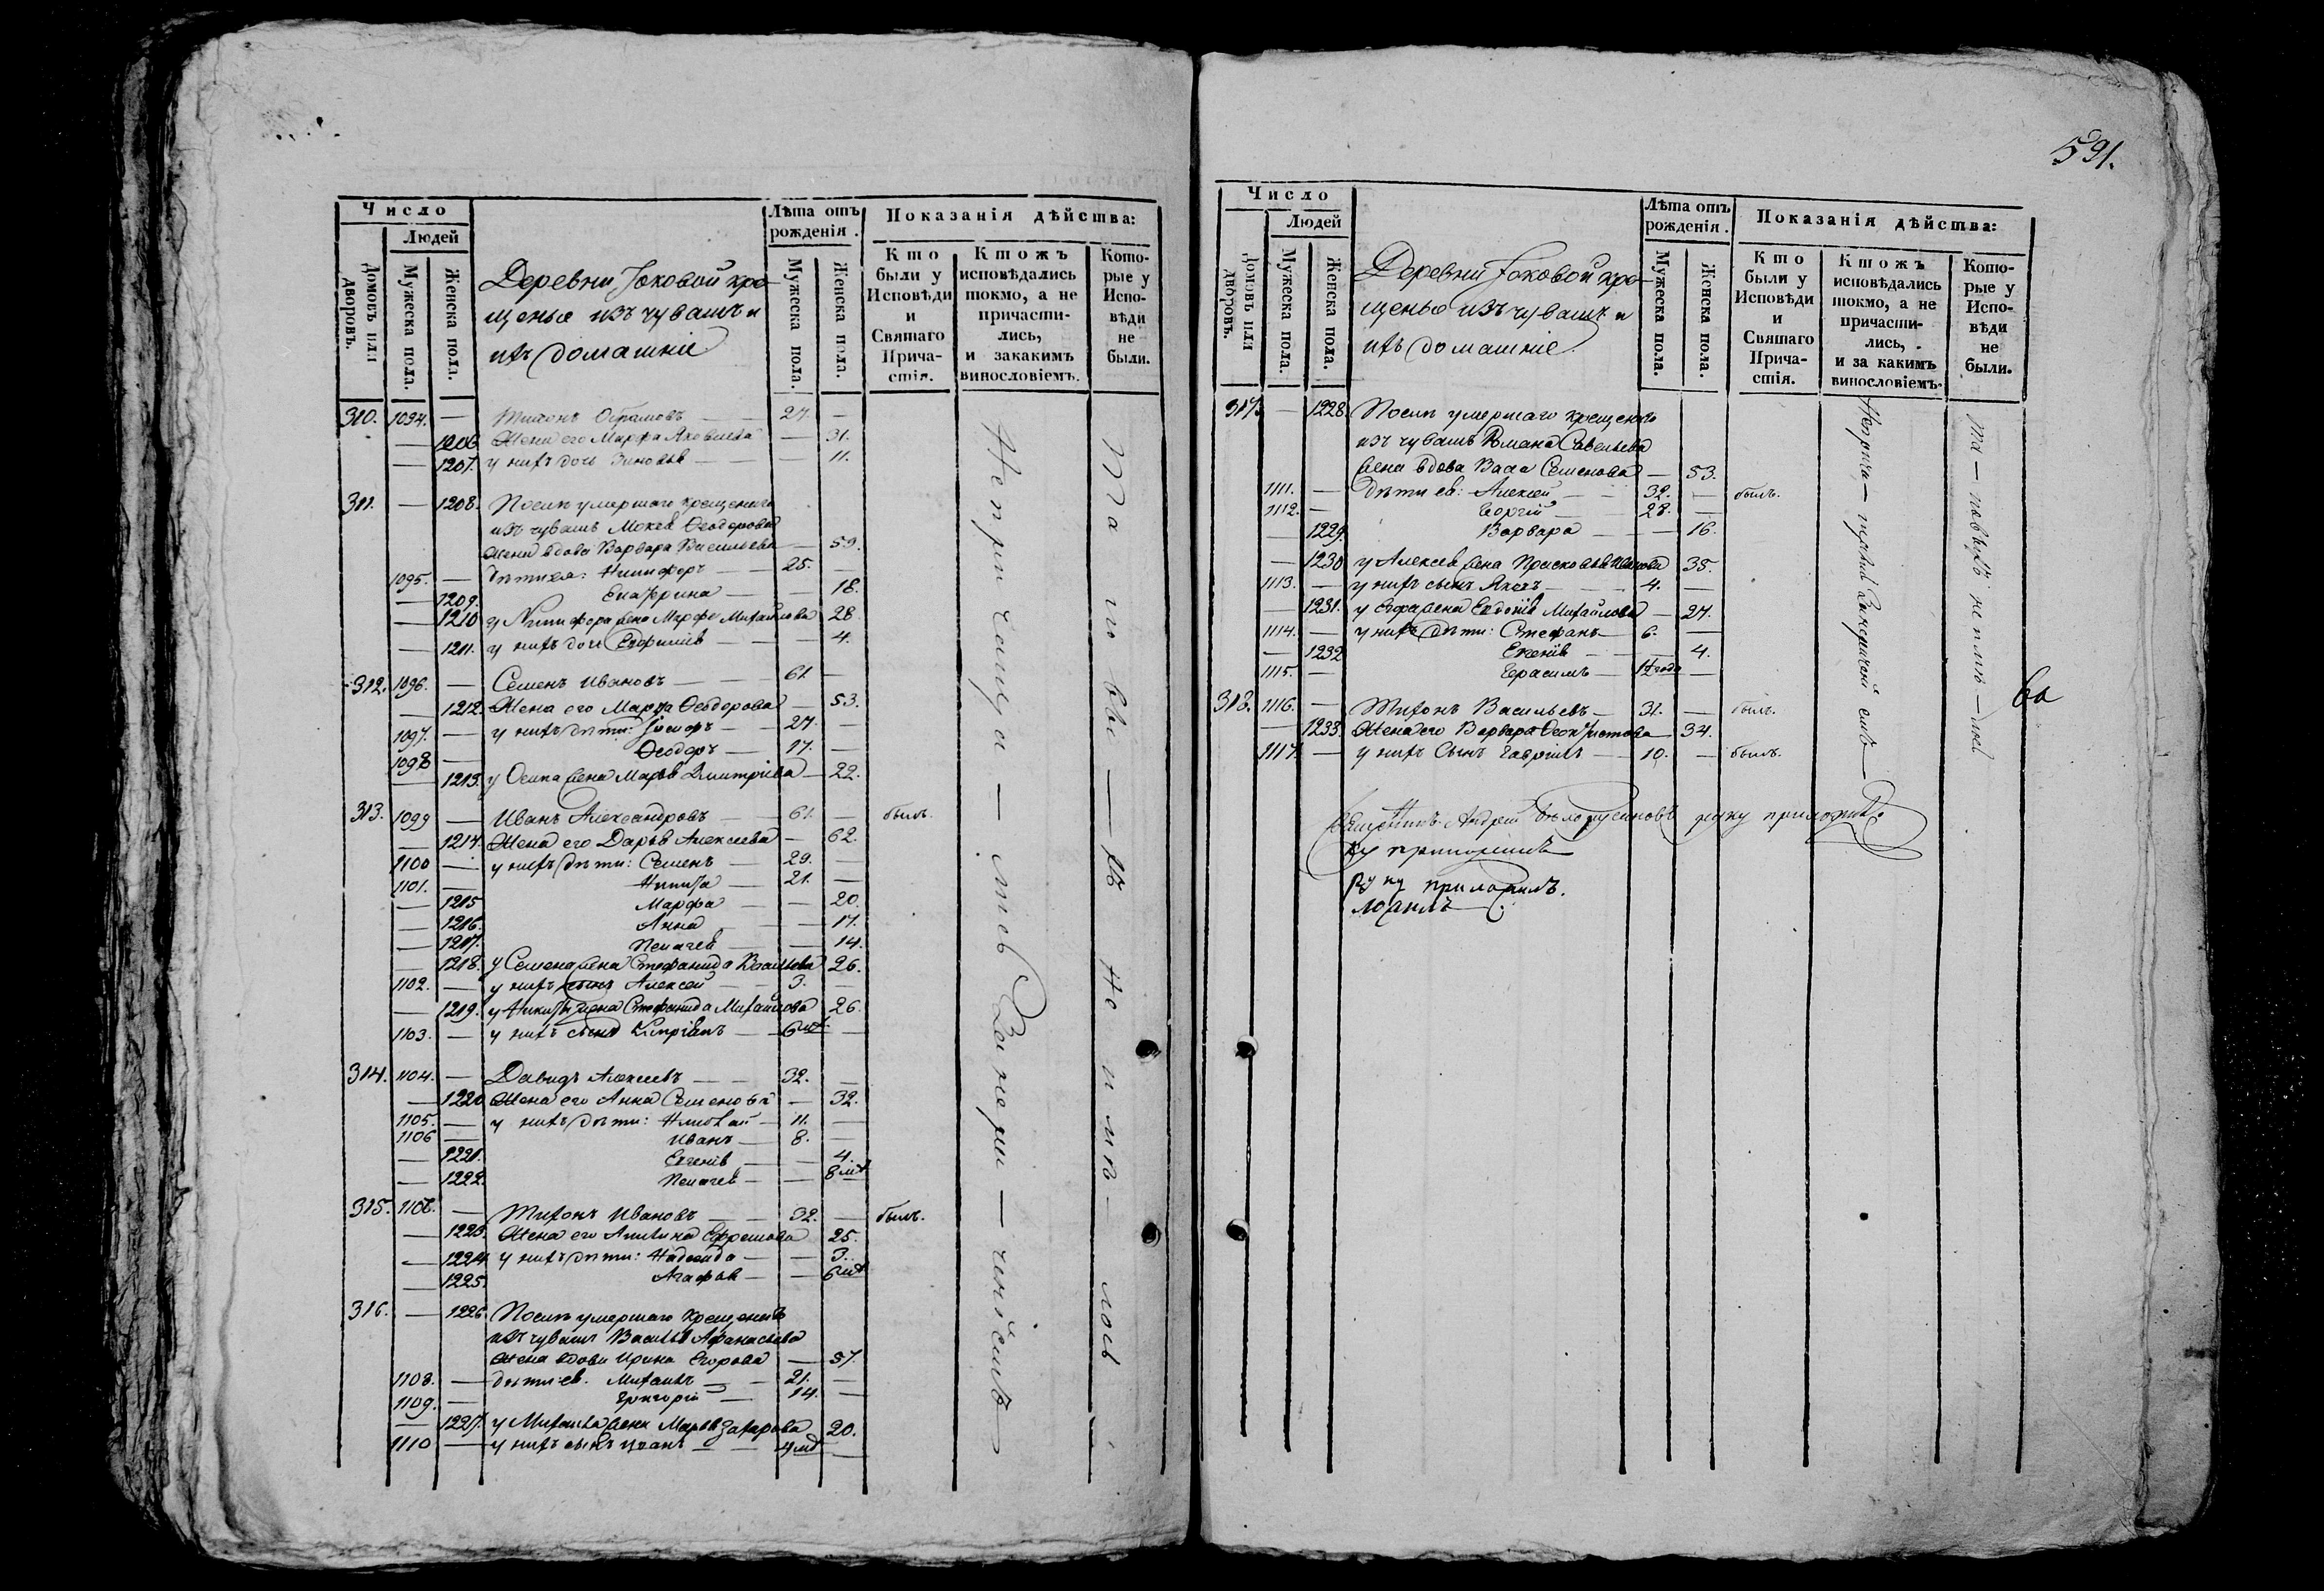 Число
Людей
Домовъ или дворовъ.
Мужеска пола.
Женска пола.
Деревни Іоковой кре-
щеные изъ чувашъ и
ихъ домашніе
Лѣта отъ рожденія.
Мужеска пола.
Женска пола.
Показанія дѣйства:
Кто были у Исповѣди и Святаго Прича-стія.
Ктожъ исповѣдались токмо, а не причасти-лись, и закакимъ винословіемъ.
Кото-рые у Испо-вѣди не были.
310. 1094. — Тихонъ 27. —
— 1206. Жена его Марфа Яковлева — 31.
— 1207. у нихъ дочь Зиновья — 11.
311. — 1208. Послѣ умершаго крещенаго
изъ чувашъ Мокея Ѳеодорова
жена вдова Варвара Васильева — 59.
1095. — дѣти ея: Никифоръ — 25. —
— 1209. Екатерина — 18.
— 1210 у Никифора жена Марфа Михайлова 28
— 1211. у нихъ дочь Евфимія — 4.
312. 1096. — Семенъ Ивановъ — 61 —
— 1212. Жена его Марѳа Ѳеодорова — 53.
1097. — у нихъ дѣти: Іосифъ — 27. —
1098 — Ѳеодоръ — 17. —
— 1213. у Осипа жена Марья Дмитріева — 22.
313. 1099 — Иванъ Александровъ — 61. — былъ.
— 1214. Жена его Дарья Алексеева — 62.
1100 — у нихъ дѣти: Семенъ — 29. —
1101. — Никита — 21. —
— 1215 Марфа — 20.
— 1216. Анна — 17.
— 1217. Пелагея — 14.
— 1218. у Семена жена Стефанида Васильева 26.
1102. — у нихъ сынъ Алексей — 3. —
— 1219. у Никиты жена Стефанида Михайлова 26.
1103. — у нихъ сынъ Кипріанъ — 6 мѣ. —
314. 1104. — Давидъ Алексеевъ — 32. —
— 1220 Жена его Анна Семенова — 32.
1105. — у нихъ дѣти: Николай — 11. —
1106 — Иванъ — 8. —
— 1221. Евгенія — 4.
— 1222. Пелагея — 8 мѣ
315. 1106. — Тихонъ Ивановъ — 32. — былъ.
— 1223. Жена его Акилина Ефремова 25.
— 1224. у нихъ дѣти: Надежда — 3.
— 1225. Агафья — 6 мѣ
316. — 1226. Послѣ умершаго крещенаго
изъ чувашъ Василья Афанасьева
жена вдова Ирина Егорова — 57.
1108. — дѣти ея. Михаилъ — 21. —
1109. — Григорій — 14. —
— 1227. у Михаила жена Марья Захарова 20.
1110 — у нихъ сынъ Иванъ — 4 мѣ —
591.
Число
Людей
Домовъ или дворовъ.
Мужеска пола.
Женска пола.
Деревни Іоковой кре-
щеные изъ чувашъ и
ихъ домашніе.
Лѣта отъ рожденія.
Мужеска пола.
Женска пола.
Показанія дѣйства:
Кто были у Исповѣди и Святаго Прича-стія.
Ктожъ исповѣдались токмо, а не причасти-лись, и за какимъ винословіемъ.
Кото-рые у Испо-вѣди не были.
317. — 1228. Послѣ умершаго крещенаго
изъ чувашъ Романа Савельева
жена вдова Васса Семенова — 53.
1111. — дѣти ея: Алексей — 32. — былъ.
1112. — Георгій — 28. —
— 1229. Варвара — 16.
— 1230 у Алексея жена Прасковья Иванова 35.
1113. — у нихъ сынъ Яковъ — 4. —
— 1231. у Егора жена Евдокія Михайлова — 27.
1114. — у нихъ дѣти: Стефанъ — 6. —
— 1232 Евгенія — 4.
1115. — Герасимъ — 1½ года —
318. 1116. — Тихонъ Васильевъ — 31. — былъ.
— 1233. Жена его Варвара Ѳеоктистова 34.
1117. — у нихъ сынъ Гавріилъ — 10. — былъ.
Священникъ Андрей Бѣлорусановъ руку приложилъ
руку приложилъ.